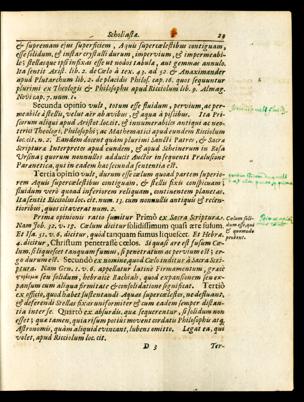 Scholiasta. 29
& supremam ejus superficiem, Aquis supercœlestibus contiguam,
esse solidum, & instar crystalli durum, impervium, & impermeabi-
le; stellasque ipsi infixas esse ut nodos tabula, aut gemmas annulo.
Ita sentit Arist. lib. 2. de Cœlo à tex. 43. ad 52. & Anaximander
apud Plutarchum lib. 2. de placitis Philos. cap. 16. quos sequuntur
plurimi ex Theologis & Philosophis apud Ricciolum lib. 9. Almag.
Novi cap. 7. num. 1.
Secunda opinio vult, totum esse fluidum, pervium, ac per-
meabile à stellis, velut aër ab avibus, & aqua à piscibus. Ita Pri-
scorum aliqui apud Aristot. loc. cit. & innumerabiles antiqui ac neo-
terici Theologi, Philosophi, ac Mathematici apud eundem Ricciolum
loc. cit. n. 2. Eandem docent quàm plurimi Sancti Patres, & Sacra
Scriptura Interpretes apud eundem, & apud Scheinerum in Rosa
Ursina; quorum nonnullos adducit Auctor in sequenti Prælusione
Parænetica, qui in eadem hac secunda sententia est.
Tertia opinio vult, durum esse cœlum quoad partem superio-
rem Aquis supercœlestibus contiguam, & stellis fixis conspicuam;
fluidum verò quoad inferiorem reliquam, continentem planetas.
Ita sentit Ricciolus loc. cit. num. 13. cum nonnullis antiquis & recen-
tioribus, quos citat eodem num. 2.
Prima opinionis ratio sumitur Primò ex Sacra Scriptura.
Nam Job. 37. v. 18. Cœlum dicitur solidissimum quasi ære fusum.
Et Isa. 51. v. 6. dicitur, quòd tanquam fumus liquescet. Et Hebræ.
4. dicitur, Christum penetrasse cœlos. Si quasi ære est fusum Cœ-
lum, si liquescet tanquam fumus, si penetratum ac pervium est;
ergo durum est. Secundò ex nomine, quod Cœlo inditur à Sacra Scri-
ptura. Nam Gen. 1. v. 6. appellatur latinè Firmamentum, græcè
solidum, hebraicè Rachiah, quod expansionem seu ex-
pansum cum aliqua firmitate & consolidatione significat. Tertiò
ex officio, quod habet sustentandi Aquas supercœlestes, ne defluant,
& deferendi Stellas fixas uniformiter & cum eadem semper distan-
tia inter se. Quartò ex absurdis, quæ sequerentur, si solidum non
esset; quæ tamen, quia risum potiùs movent cordatis Philosophis atq;
Astronomis, quàm aliquid evincant, lubens omitto. Legat ea, qui
volet, apud Ricciolum loc. cit.
Cœlum soli-
dum esse, qui
& quomodo
probent.
D 3 Ter-